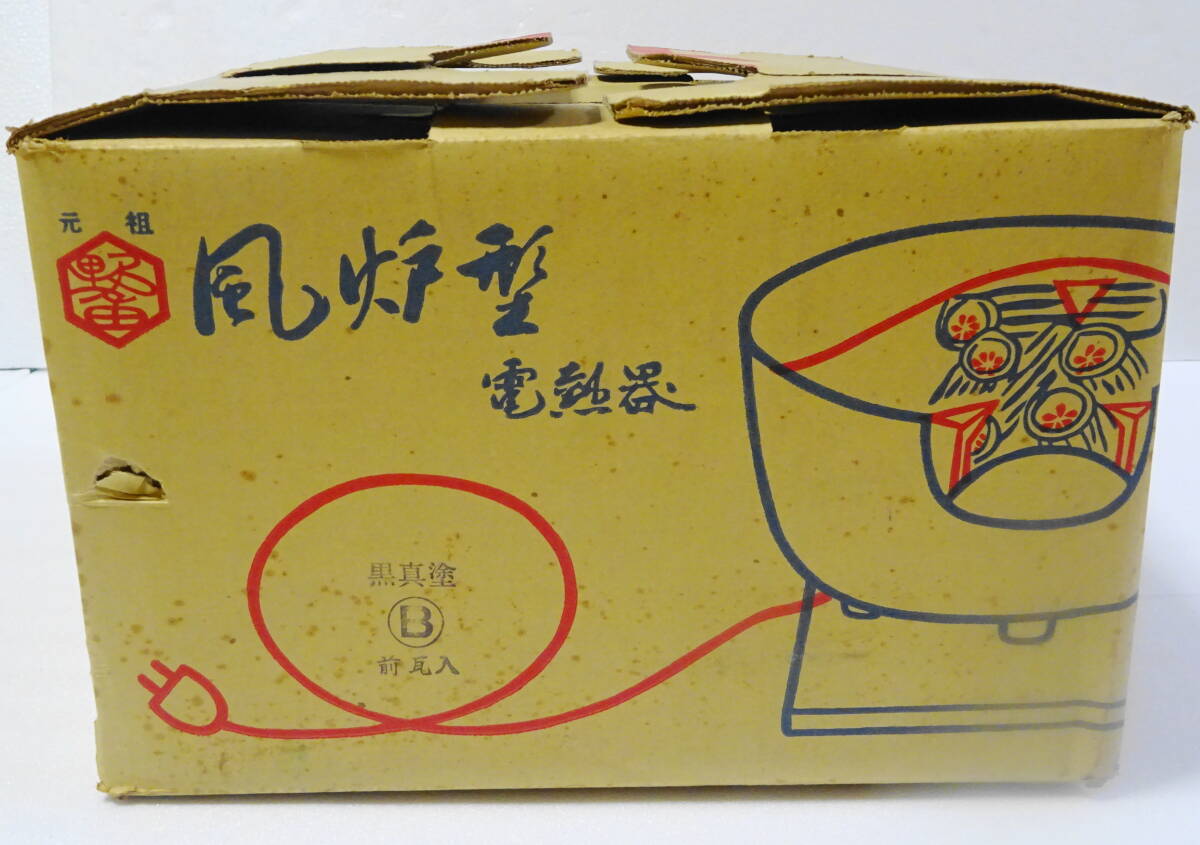 元祖
風炉型
電熱器
黒真塗
B
前瓦入